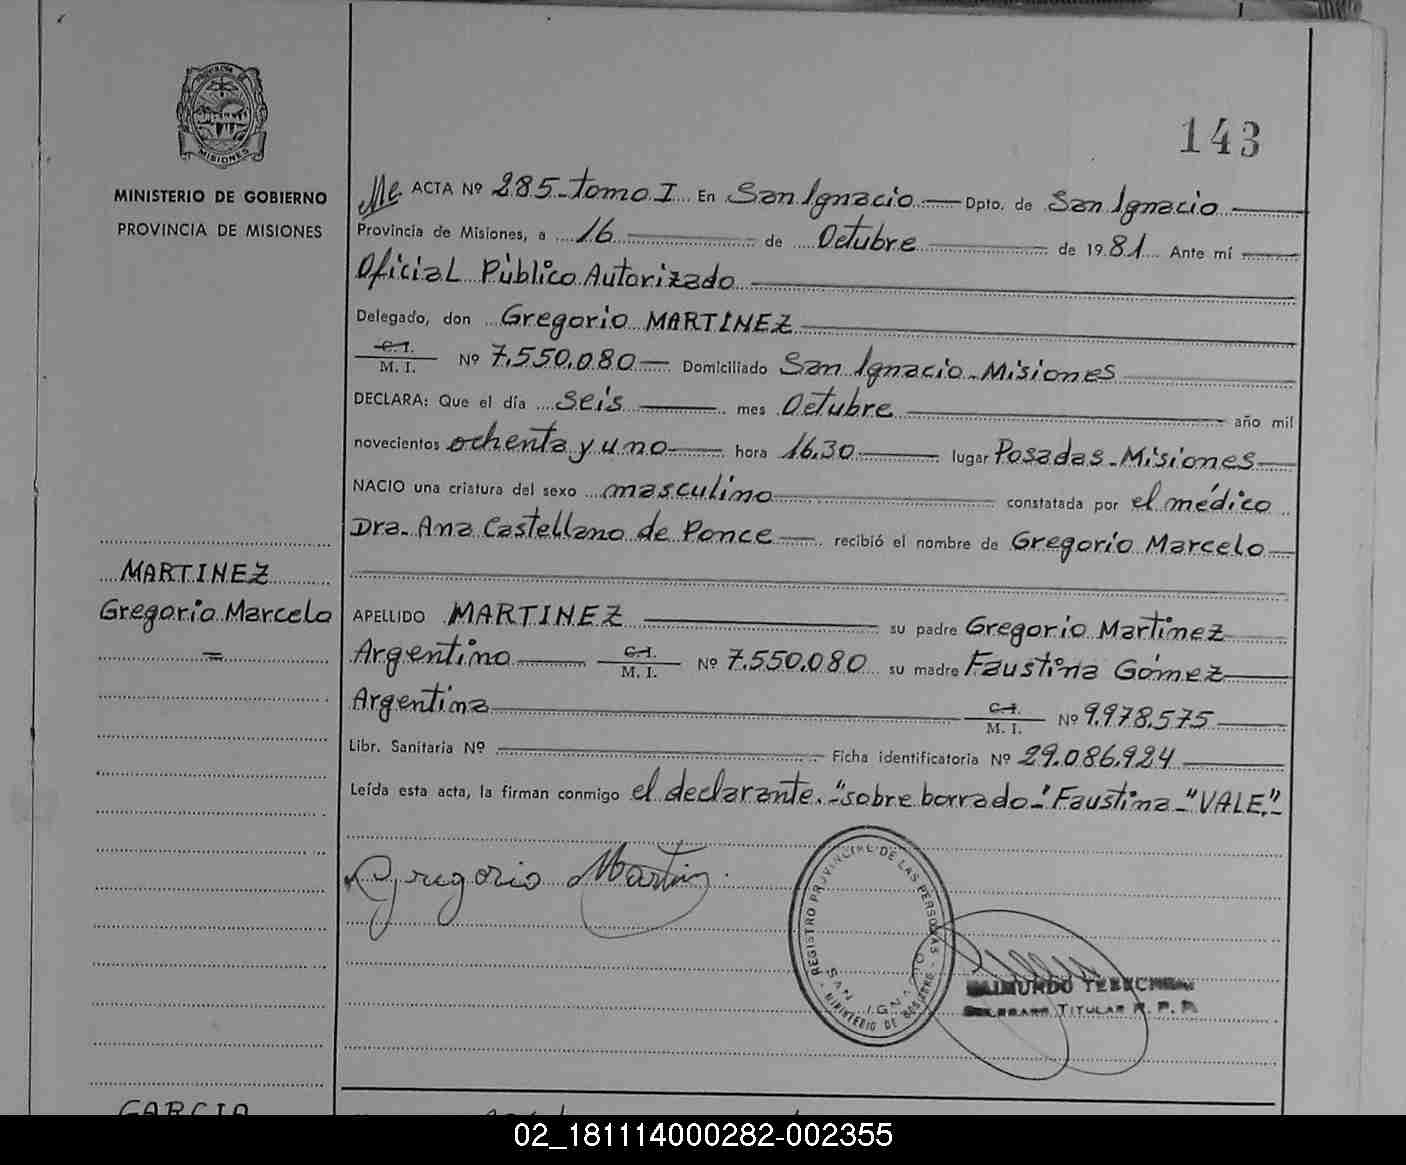 PROVINCIA DE
MISIONES
MINISTERIO DE GOBIERNO
PROVINCIA DE MISIONES
MARTINEZ
Gregorio Marcelo
=
143
ACTA Nº 285-tomo I En San Ignacio Dpto. de San Ignacio
Provincia de Misiones, a 16 de Octubre de 1981 Ante mí
Oficial Público Autorizado
Delegado, don Gregorio MARTINEZ
C.I.
M. I. Nº 7.550.080 Domiciliado San Ignacio-Misiones
DECLARA: Que el día seis mes Octubre año mil
novecientos ochenta y uno hora 16,30 lugar Posadas-Misiones
NACIO una criatura del sexo masculino constatada por el médico
Dra. Ana Castellano de Ponce recibió el nombre de Gregorio Marcelo
APELLIDO MARTINEZ su padre Gregorio Martinez
Argentino C.I.
M. I. Nº 7.550.080 su madre Faustina Gómez
Argentina C.I.
M. I. Nº 9.978.575
Libr. Sanitaria Nº Ficha identificatoria Nº 29.086.924
Leída esta acta, la firman conmigo el declarante.-"sobre borrado-" Faustina-"VALE."-
Gregorio Martin
REGISTRO PROVINCIAL DE LAS PERSONAS
SAN IGNACIO
MINISTERIO DE GOBIERNO
RAIMUNDO
TITULAR R. P. P.
GARCIA
02_181114000282-002355